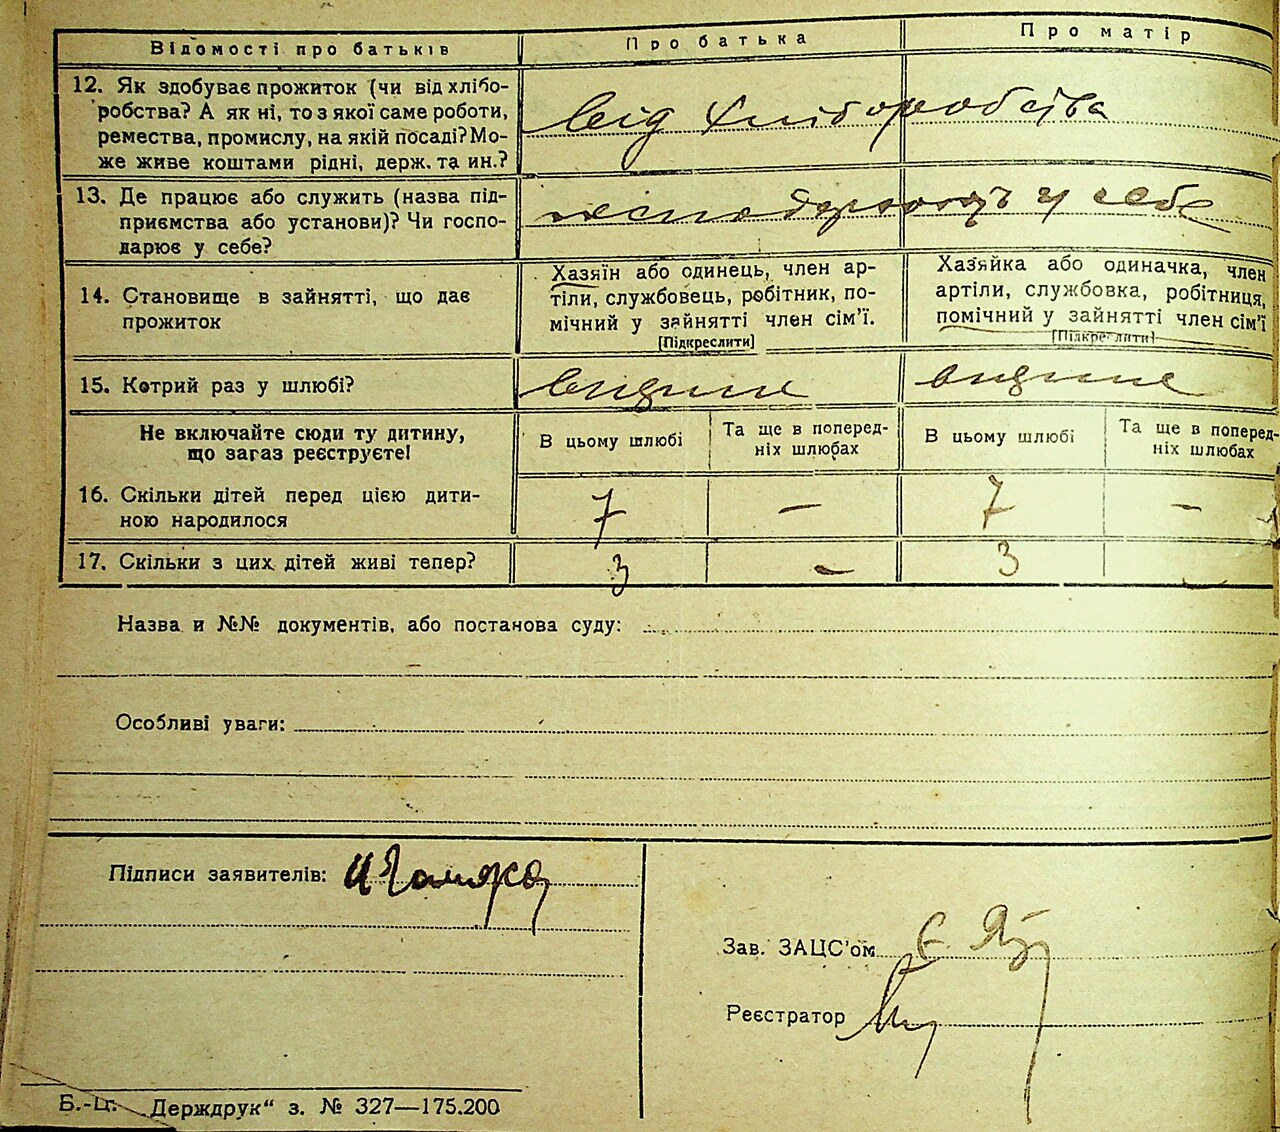 Відомості про батьків
Про батька
Про матір
12. Як здобуває прожиток (чи від хлібо-
робства? А як ні, то з якої саме роботи,
ремества, промислу, на якій посаді? Мо-
же живе коштами рідні, держ. та ин.?
від хліборобства
13. Де працює або служить (назва під-
приємства або установи)? Чи госпо-
дарює у себе?
у себе
14. Становище в зайнятті, що дає
прожиток
Хазяїн або одинець, член ар-
тіли, службовець, робітник, по-
мічний у зайнятті член сім'ї.
[Підкреслити]
Хазяйка або одиначка, член
артіли, службовка, робітниця,
помічний у зайнятті член сім'ї
[Підкреслити]
15. Котрий раз у шлюбі?
Не включайте сюди ту дитину,
що загаз реєструєте!
В цьому шлюбі
Та ще в поперед-
ніх шлюбах
В цьому шлюбі
Та ще в поперед-
ніх шлюбах
16. Скільки дітей перед цією дити-
ною народилося
7 – 7 –
17. Скільки з цих дітей живі тепер?
3 – 3
Назва и №№ документів, або постанова суду:
Особливі уваги:
Підписи заявителів:
Зав. ЗАЦС'ом
Реєстратор
Б.-Ц. „Держдрук" з. № 327—175.200